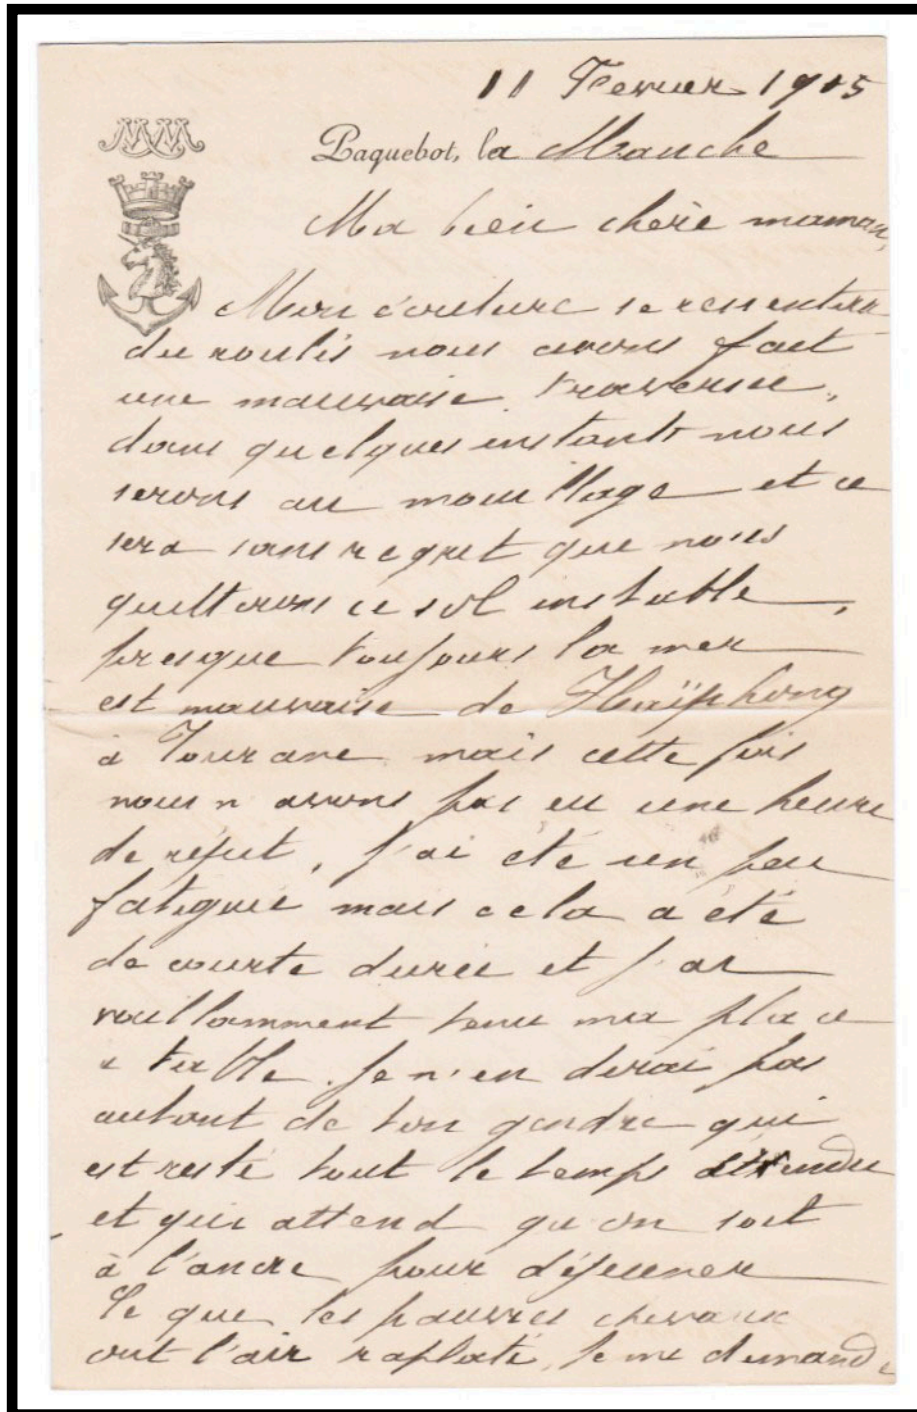 11 Fevrier 1905
MM
Paquebot, la Manche
Ma bien chère maman,
Mon écriture se ressentira
du roulis nous avons fait
une mauvaise traversée,
dans quelques instants nous
serons au mouillage et ce
sera sans regret que nous
quitterons ce sol instable,
presque toujours la mer
est mauvaise de Haïphong
à Tourane mais cette fois
nous n'avons pas eu une heure
de répit, j'ai été un peu
fatiguée mais cela a été
de courte durée et j'ai
vaillamment tenu ma place
à table. Je n'en dirai pas
autant de ton gendre qui
est resté tout le temps étendu
et qui attend qu'on soit
à l'ancre pour déjeuner
Ce que les pauvres chevaux
ont l'air raplati, je me demande